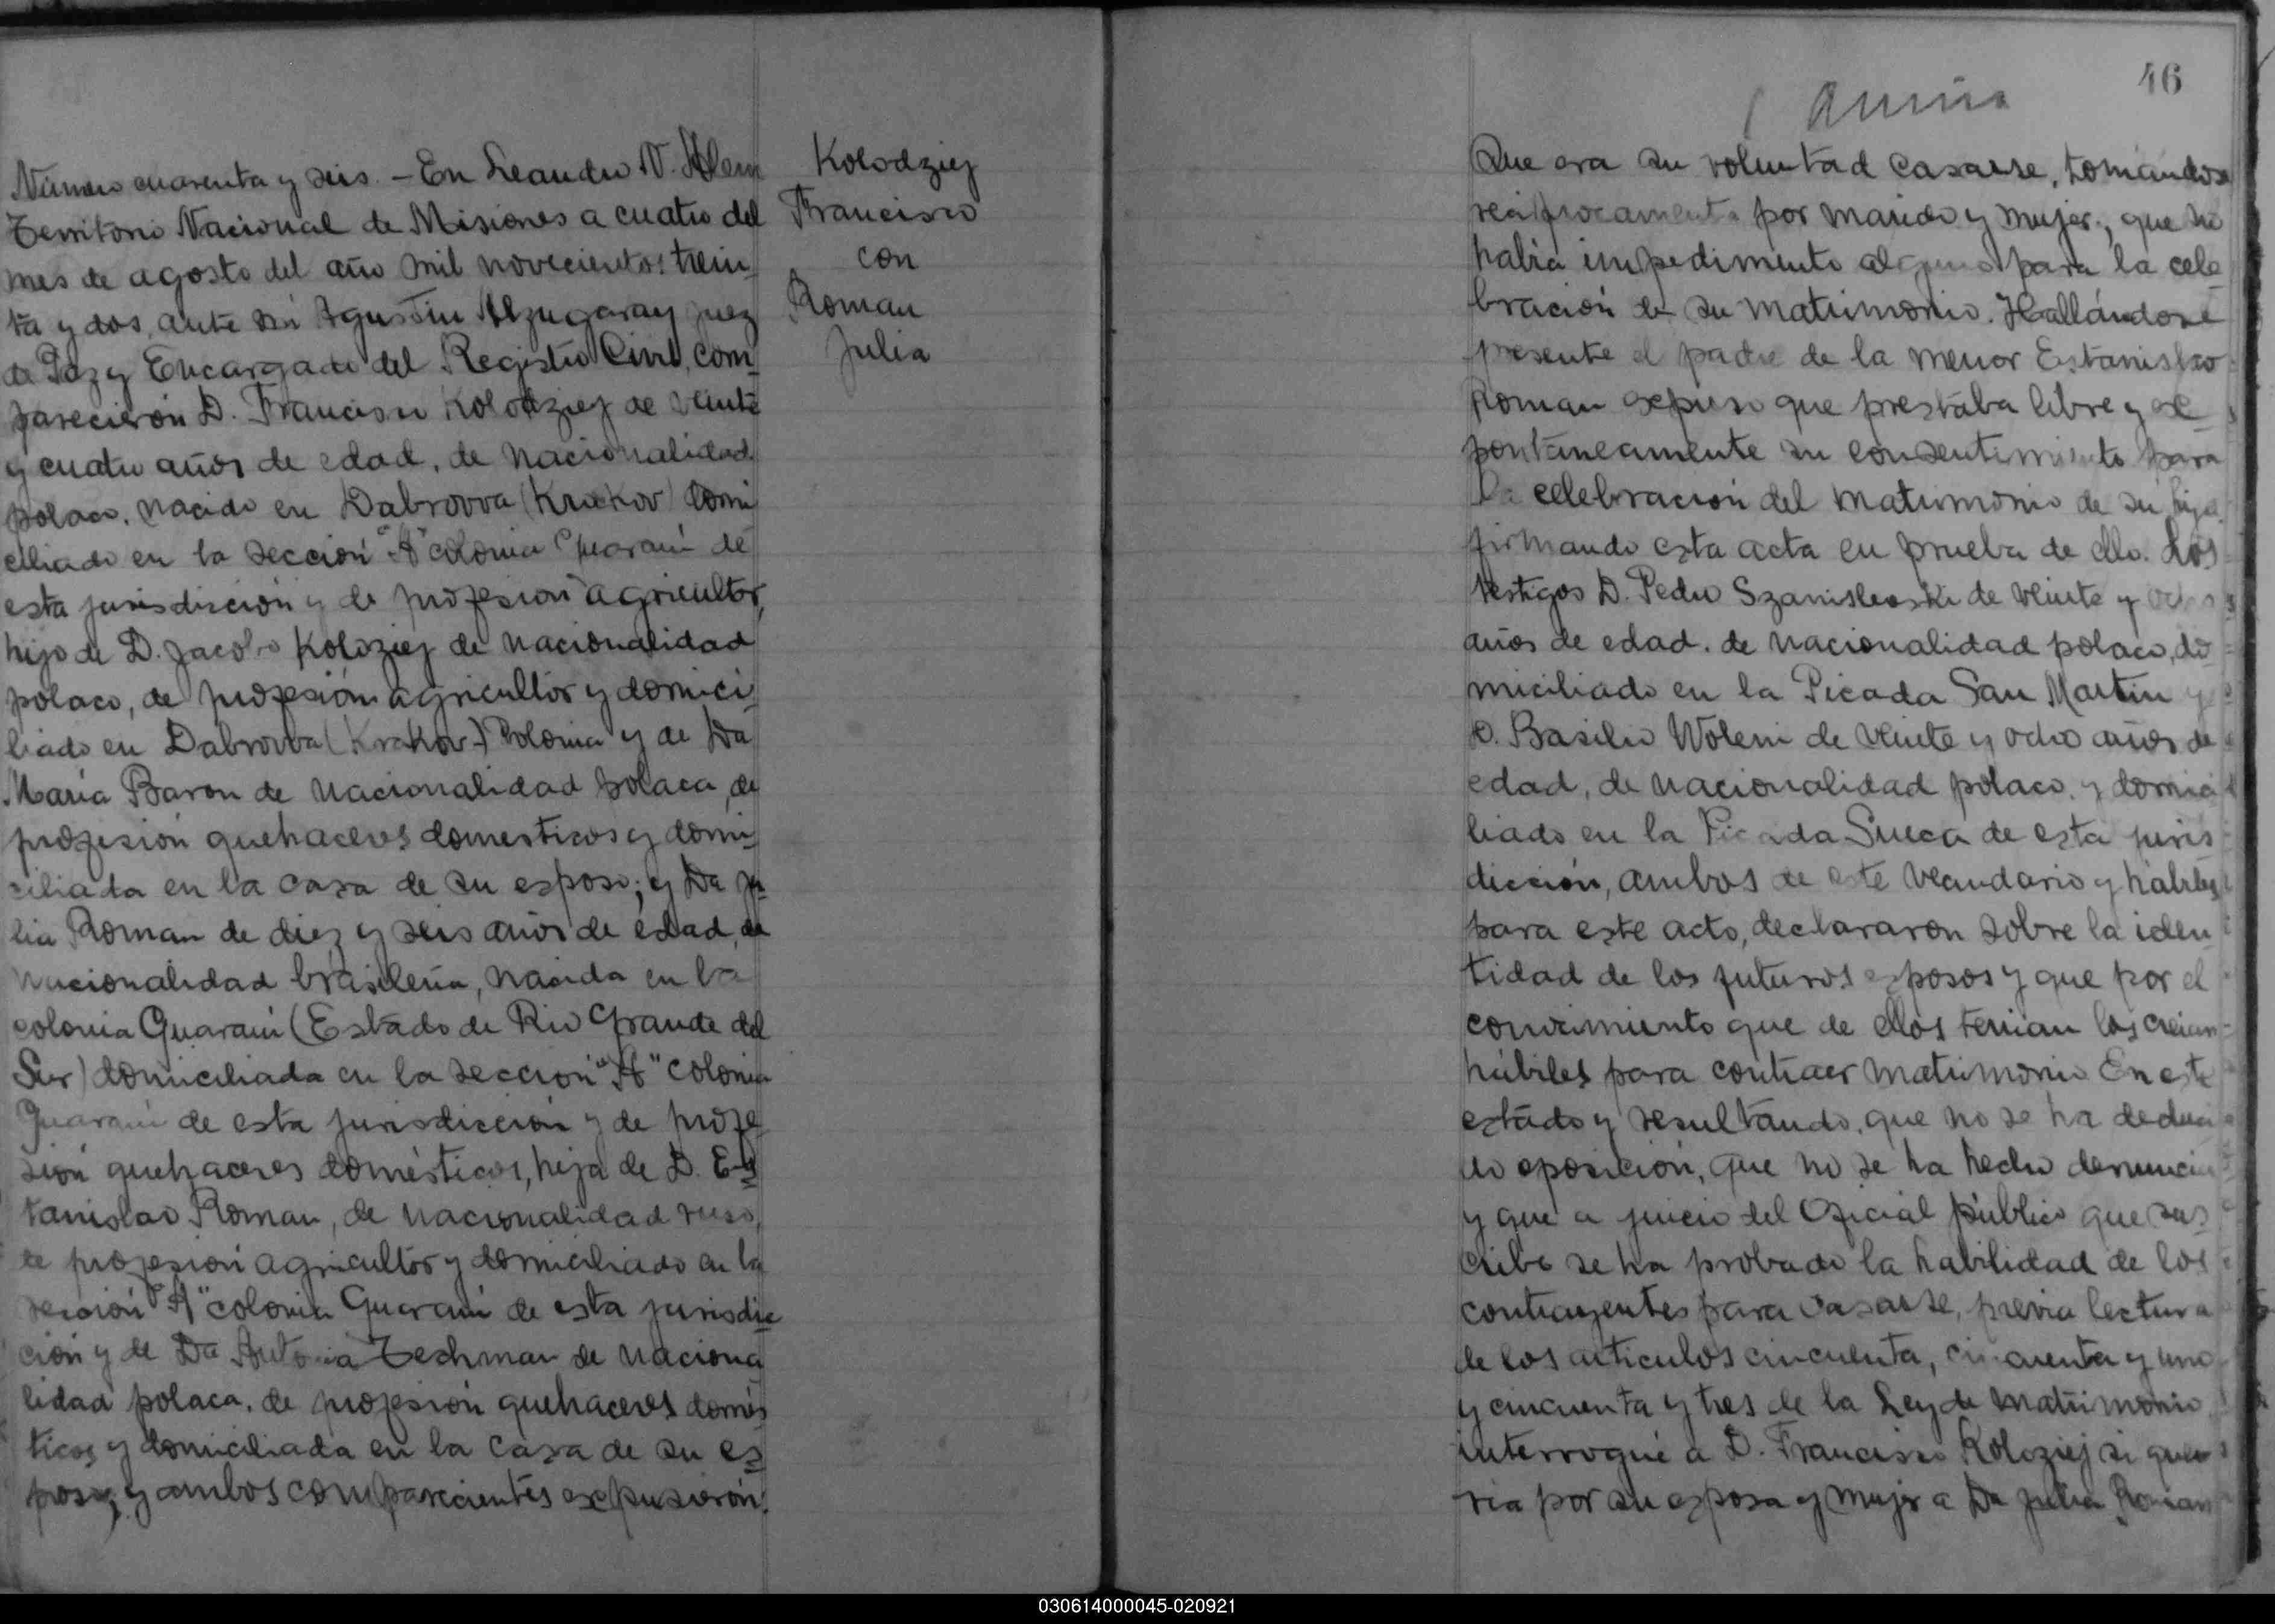 Número cuarenta y seis. - En Leandro N. Alem
Territorio Nacional de Misiones a cuatro del
mes de agosto del año mil novecientos trein_
ta y dos, ante mí Agustin Alzugaray juez
de Paz y Encargado del Registro Civil, com_
parecieron D. Francisco Kolodziej de veinte
y cuatro años de edad, de nacionalidad
polaco, nacido en Dabrovva (Krakov) domi
ciliado en la sección "A" colonia Guaraní de
esta jurisdicción y de profesion agricultor,
hijo de D. Jacobo Koloziej de nacionalidad
polaco, de profesión agricultor y domici_
liado en Dabrovva (Krakov) Polonia y de Da
María Baron de nacionalidad polaca, de
profesión quehaceres domesticos y domi_
ciliada en la casa de su esposo; y Da Ju_
lia Roman de diez y seis años de edad, de
nacionalidad brasileña, nacida en la
colonia Guaraní (Estado de Rio Grande del
Sur) domiciliada en la sección "A" colonia
Guaraní de esta jurisdicción y de profe_
sión quehaceres domésticos, hija de D. Es_
tanislao Roman, de nacionalidad ruso,
de profesión agricultor y domiciliado en la
sección "A" colonia Guaraní de esta jurisdic_
ción y de Da Antonia Teschman de naciona_
lidad polaca, de profesión quehaceres domés
ticos y domiciliada en la casa de su es_
poso; y ambos comparecientes expusieron:
Kolodziej
Francisco
con
Roman
Julia
46
Que era su voluntad casarse, tomándose
reciprocamente por marido y mujer, que no
había impedimento alguno para la cele
bración de su matrimonio. Hallándose
presente el padre de la menor Estanislao
Roman expuso que prestaba libre y es_
pontáneamente su consentimiento para
la celebración del matrimonio de su hija
firmando esta acta en prueba de ello. Los
testigos D. Pedro Szanisleoski de veinte y ocho
años de edad, de nacionalidad polaco, do
miciliado en la Picada San Martín y
D. Basilio Woleni de veinte y ocho años de
edad, de nacionalidad polaco, y domici
liado en la Picada Sueca de esta juris
dicción, ambos de este vecindario y hábiles
para este acto, declararon sobre la iden
tidad de los futuros esposos y que por el
conocimiento que de ellos tenian los creian
hábiles para contraer matrimonio En este
estado y resultando, que no se ha deduci
do oposición, que no se ha hecho denuncia
y que a juicio del Oficial público que sus
cribe se ha probado la habilidad de los
contrayentes para casarse, previa lectura
de los articulos cincuenta, cincuenta y uno
y cincuenta y tres de la Ley de Matrimonio
interrogué a D. Francisco Koloziej si que
ria por su esposa y mujer a Da Julia Roman
030614000045-020921